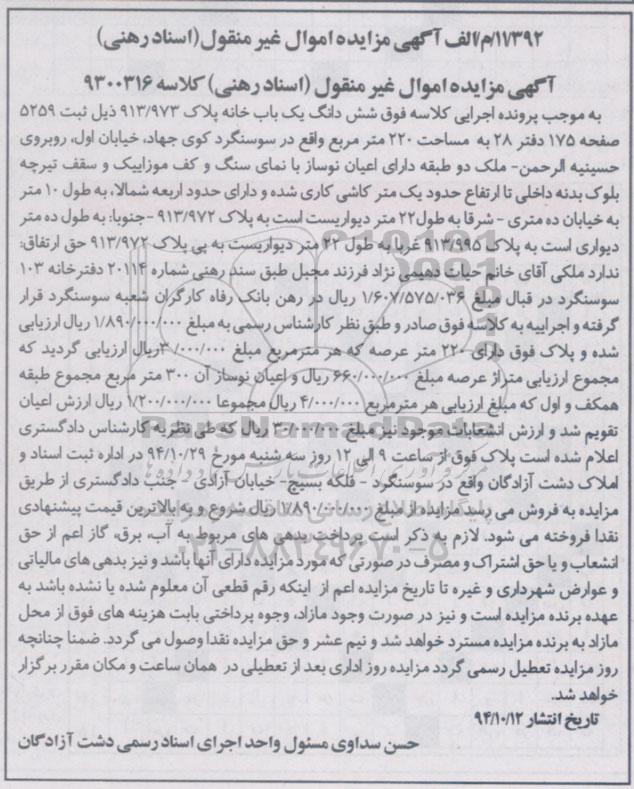 ۱۱/۳۹۲/م/الف آگهی مزایده اموال غیر منقول(اسناد رهنی)
آگهی مزایده اموال غیر منقول (اسناد رهنی) کلاسه ۹۳۰۰۳۱۶
به موجب پرونده اجرایی کلاسه فوق شش دانگ یک باب خانه پلاک ۹۱۳/۹۷۳ ذیل ثبت ۵۲۵۹
صفحه ۱۷۵ دفتر ۲۸ به مساحت ۲۲۰ متر مربع واقع در سوسنگرد کوی جهاد، خیابان اول، روبروی
حسینیه الرحمن- ملک دو طبقه دارای اعیان نوساز با نمای سنگ و کف موزاییک و سقف تیرچه
بلوک بدنه داخلی تا ارتفاع حدود یک متر کاشی کاری شده و دارای حدود اربعه شمالا، به طول ۱۰ متر
به خیابان ده متری - شرقا به طول۲۲ متر دیواریست است به پلاک ۹۱۳/۹۷۲ -جنوبا: به طول ده متر
دیواری است به پلاک ۹۱۳/۹۹۵ غربا به طول ۲۲ متر دیواریست به پی پلاک ۹۱۳/۹۷۲ حق ارتفاق:
ندارد ملکی آقای خانم حیات دهیمی نژاد فرزند مجبل طبق سند رهنی شماره ۲۰۱۱۴ دفترخانه ۱۰۳
سوسنگرد در قبال مبلغ ۱/۶۰۷/۵۷۵/۰۳۶ ریال در رهن بانک رفاه کارگران شعبه سوسنگرد قرار
گرفته و اجراییه به کلاسه فوق صادر و طبق نظر کارشناس رسمی به مبلغ ۱/۸۹۰/۰۰۰/۰۰۰ ریال ارزیابی
شده و پلاک فوق دارای ۲۲۰ متر عرصه که هر مترمربع مبلغ ۳/۰۰۰/۰۰۰ریال ارزیابی گردید که
مجموع ارزیابی متراژ عرصه مبلغ ۶۶۰/۰۰۰/۰۰۰ ریال و اعیان نوساز آن ۳۰۰ متر مربع مجموع طبقه
همکف و اول که مبلغ ارزیابی هر مترمربع ۴/۰۰۰/۰۰۰ ریال مجموعا ۱/۲۰۰/۰۰۰/۰۰۰ ریال ارزش اعیان
تقویم شد و ارزش انشعابات موجود نیز مبلغ ۳۰/۰۰۰/۰۰۰ ریال که طی نظریه کارشناس دادگستری
اعلام شده است پلاک فوق از ساعت ۹ الی ۱۲ روز سه شنبه مورخ ۹۴/۱۰/۲۹ در اداره ثبت اسناد و
املاک دشت آزادگان واقع در سوسنگرد - فلکه بسیج- خیابان آزادی - جنب دادگستری از طریق
مزایده به فروش می رسد مزایده از مبلغ ۱/۸۹۰/۰۰۰/۰۰۰ ریال شروع و به بالاترین قیمت پیشنهادی
نقدا فروخته می شود. لازم به ذکر است پرداخت بدهی های مربوط به آب، برق، گاز اعم از حق
انشعاب و یا حق اشتراک و مصرف در صورتی که مورد مزایده دارای آنها باشد و نیز بدهی های مالیاتی
و عوارض شهرداری و غیره تا تاریخ مزایده اعم از اینکه رقم قطعی آن معلوم شده یا نشده باشد به
عهده برنده مزایده است و نیز در صورت وجود مازاد، وجوه پرداختی بابت هزینه های فوق از محل
مازاد به برنده مزایده مسترد خواهد شد و نیم عشر و حق مزایده نقدا وصول می گردد. ضمنا چنانچه
روز مزایده تعطیل رسمی گردد مزایده روز اداری بعد از تعطیلی در همان ساعت و مکان مقرر برگزار
خواهد شد.
تاریخ انتشار ۹۴/۱۰/۱۲
حسن سداوی مسئول واحد اجرای اسناد رسمی دشت آزادگان
ParsNamadData
۰۲۱-۸۸۳۴۹۶۷۰-۵